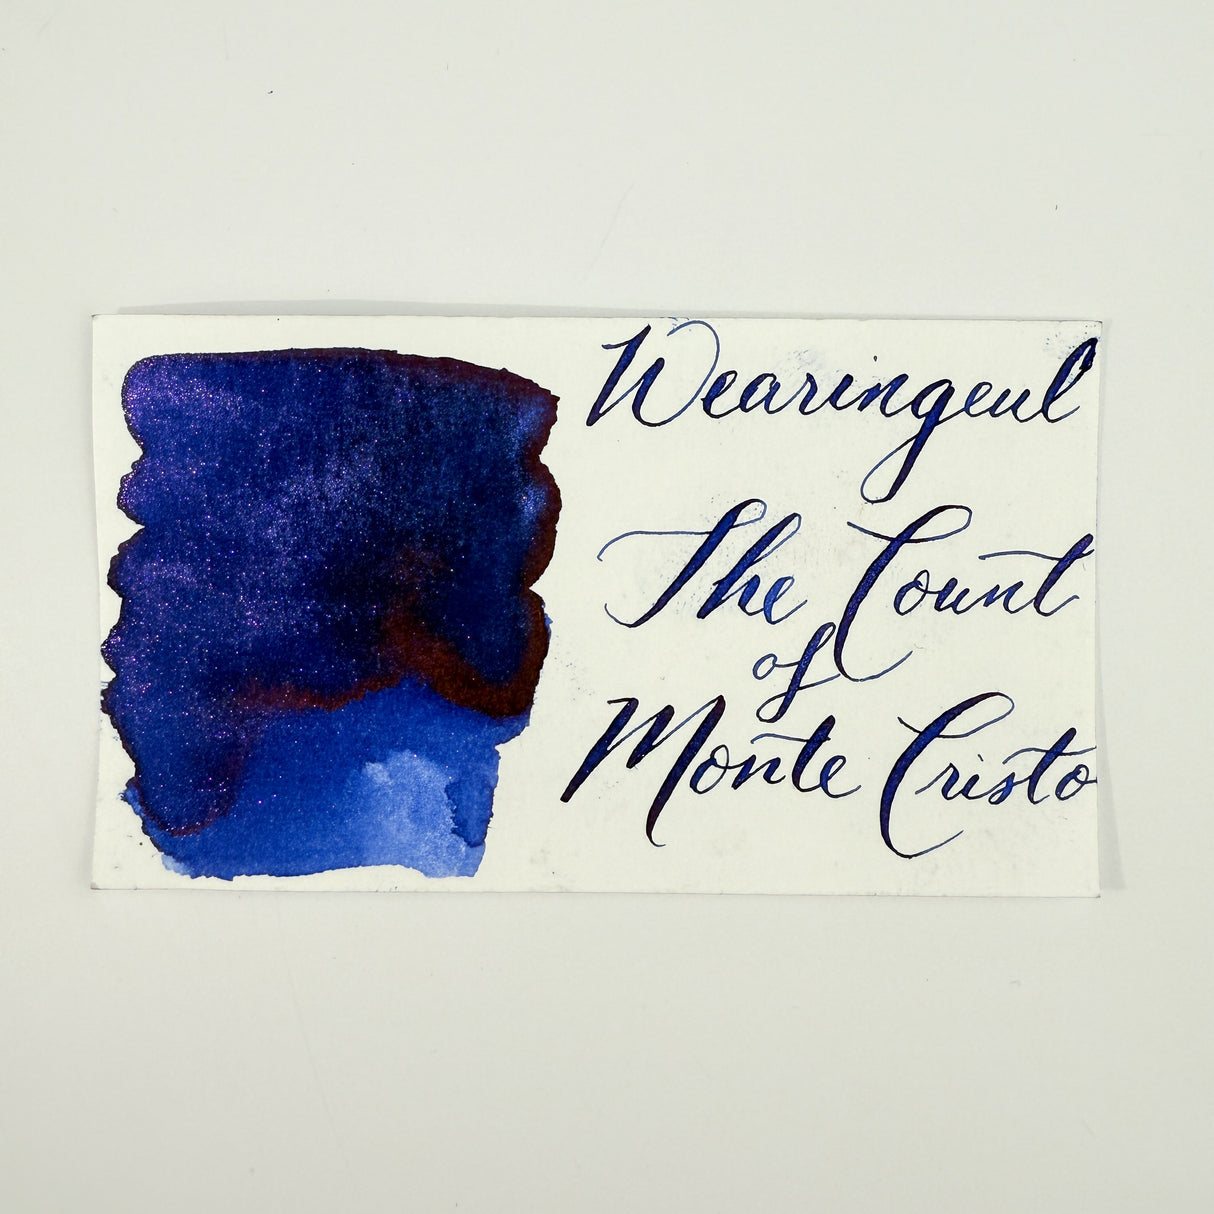 Wearingeul
The Count
of
Monte Cristo